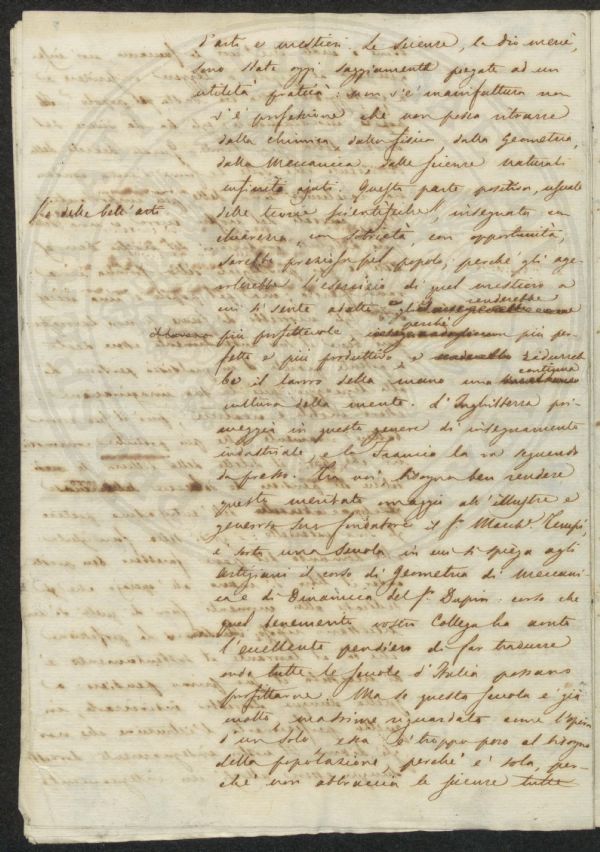 l'arti e mestieri. Le scienze, la dio mercè,
sono state oggi saggiamente piegate ad un
utilità pratica: non v'è manifattura non
v'è professione che non possa ritrarre
dalla chimica, dalla fisica, dalla Geometria,
dalla Meccanica, dalle scienze naturali
infiniti ajuti. Questa parte positiva, usuale
e delle bell'arti
delle teorie scientifiche, insegnata con
chiarezza, con sobrietà, con opportunità,
sarebbe preziosa pel popolo; perchè gli age-
volerebbe l'esercizio di quel mestiero a
cui si sente adatto, gli renderebbe
più profittevole, perchè più per-
fetto e più produttivo, e ridurreb-
be il lavoro della mano una continua
cultura della mente. L'Inghilterra pri-
meggia in questo genere di insegnamento
industriale, e la Francia la va seguendo
da presso. Tra noi bisogna ben rendere
questo meritato omaggio all'illustre e
generoso suo fondatore il Sr. March. Tempi,
è sorta una scuola in cui si spiega agli
artigiani il corso di Geometria di Meccani-
ca e di Dinamica del Sr. Dupin: corso che
quel benemerito vostro Collega ha avuto
l'eccellente pensiero di far tradurre
onde tutte le scuole d'Italia possano
profittarne. Ma se questa scuola è già
molto massime riguardata come l'opera
d'un solo, essa è troppo poco al bisogno
della popolazione, perchè è sola, per-
chè non abbraccia le scienze tutte